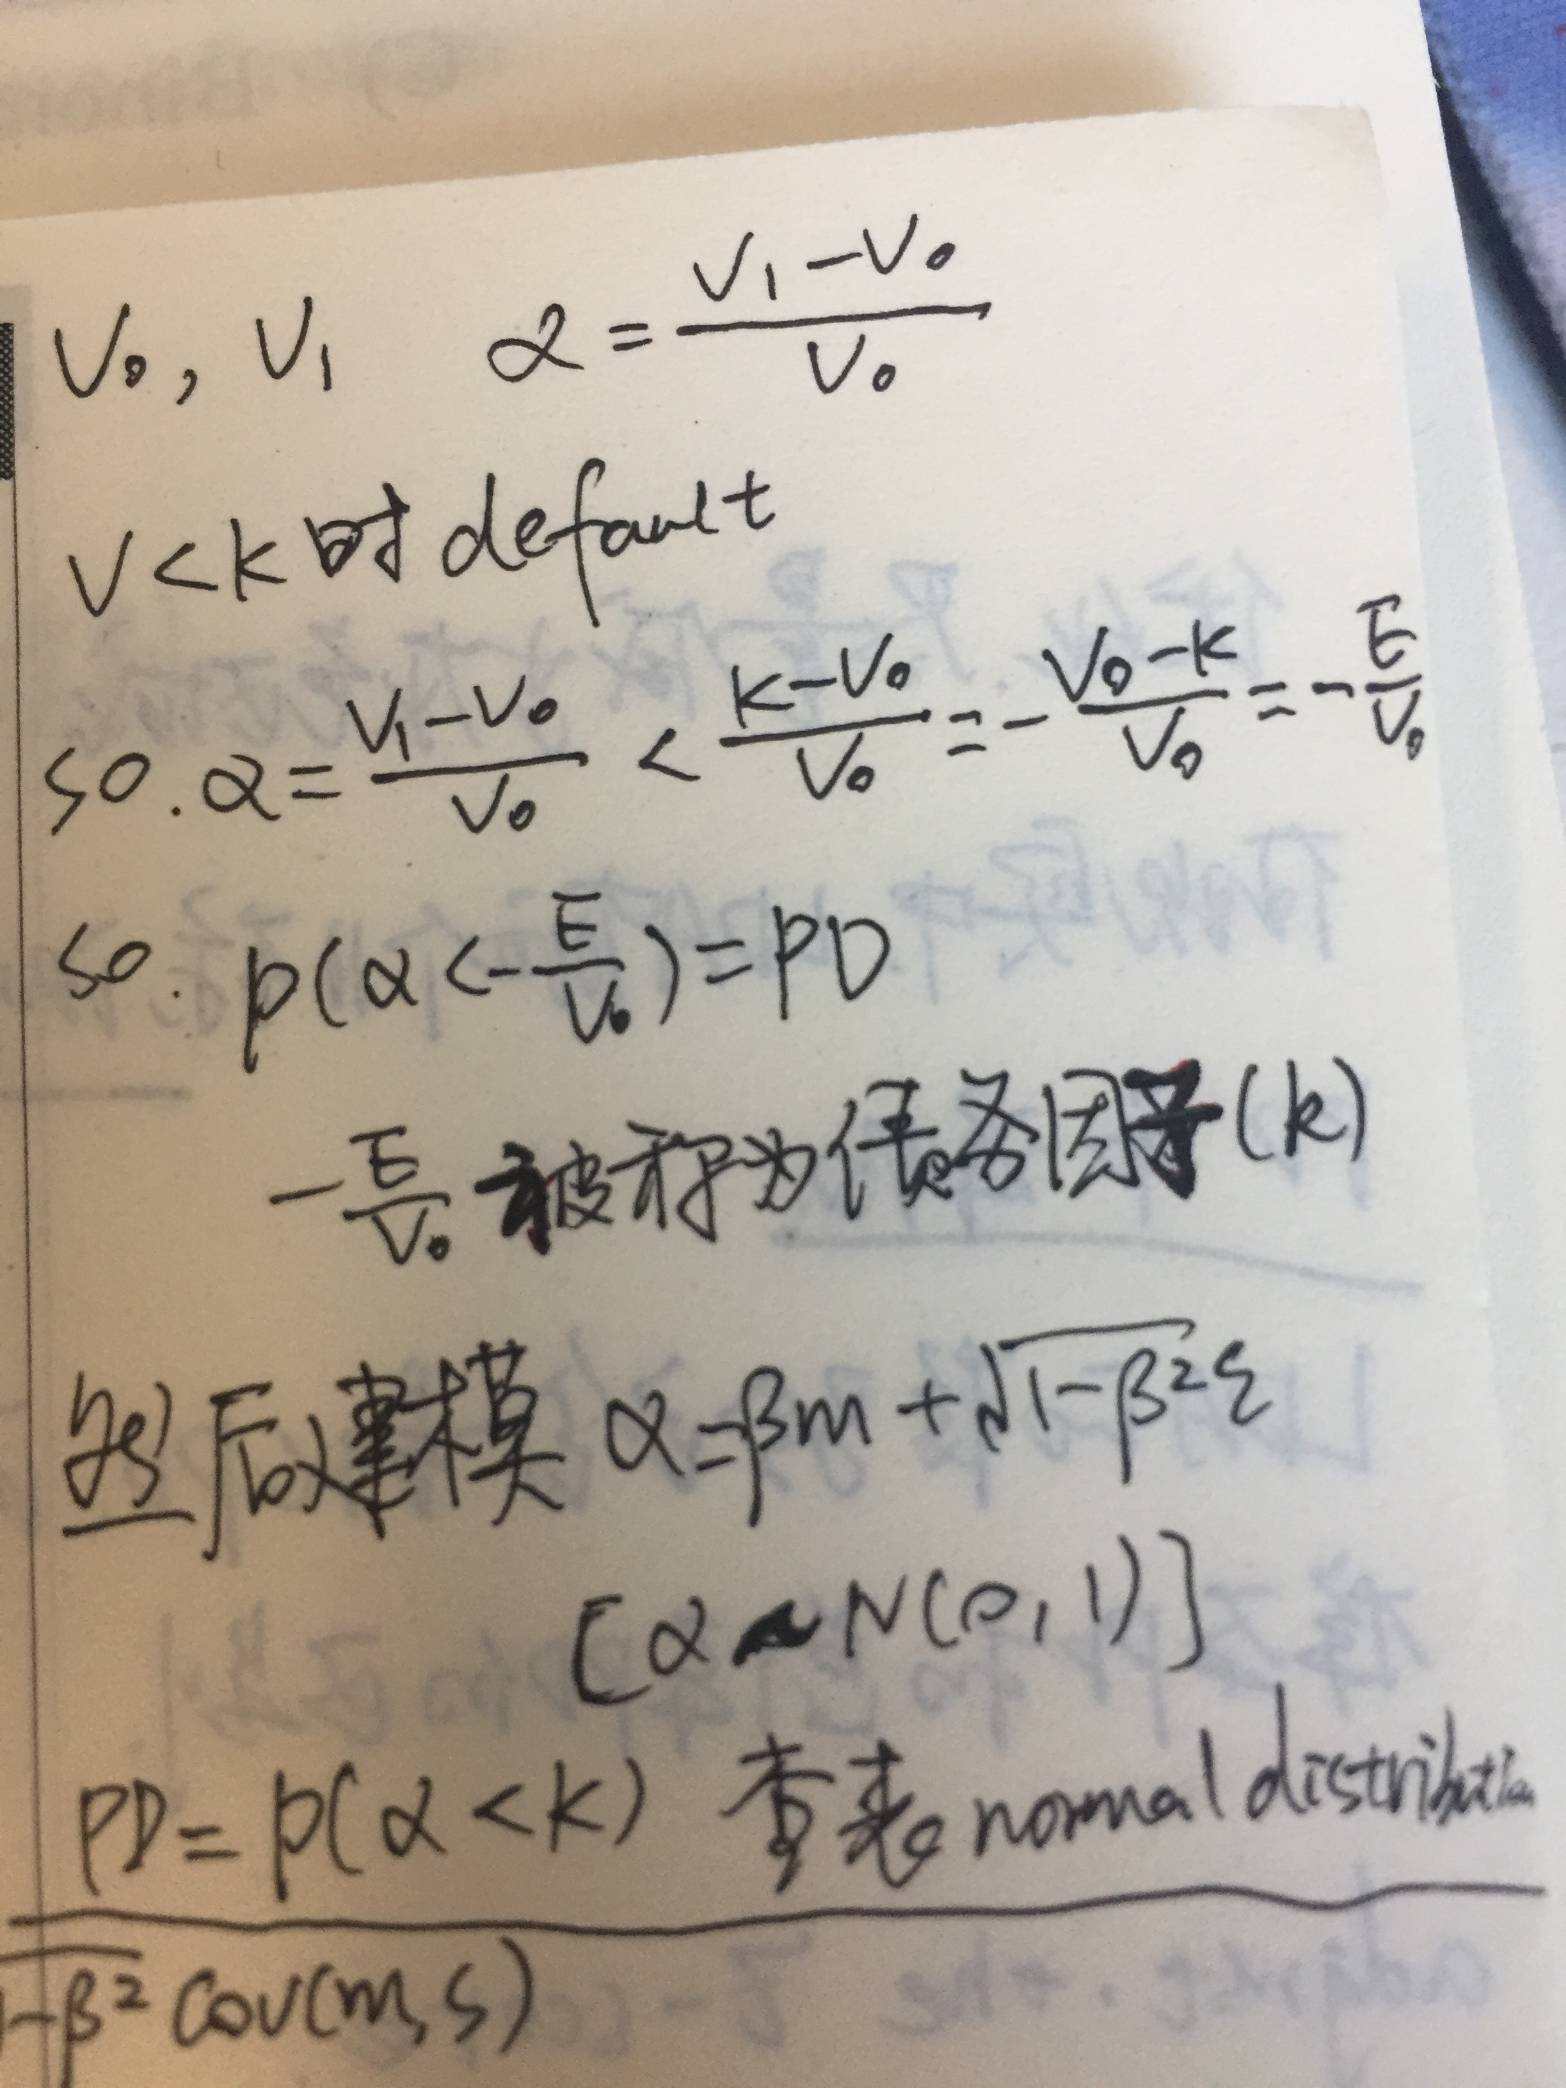 V₀, V₁ α = (V₁-V₀)/V₀
V<K时default
so. α = (V₁-V₀)/V₀ < (K-V₀)/V₀ = -(V₀-K)/V₀ = -E/V₀
so. p(α<-E/V₀)=PD
-E/V₀ 被称为债务因子(k)
然后建模 α=βm+√(1-β²)ε
[α~N(0,1)]
PD=p(α<K) 查表normal distribution
1-β² Cov(m,ε)